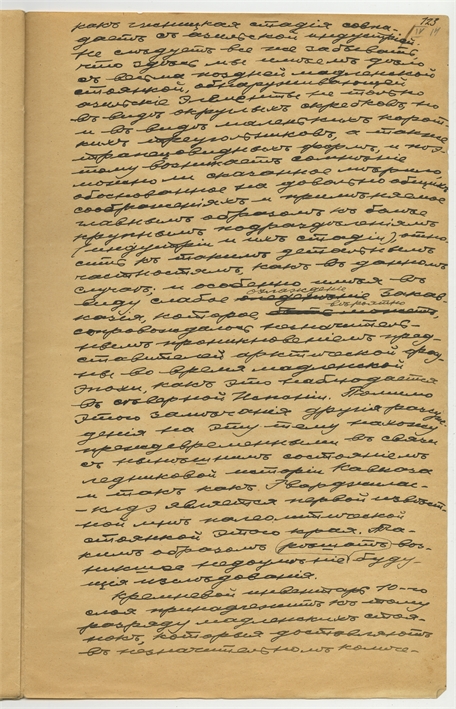 123
какъ гшницкая стадія совпа-
даетъ съ азильской индустріей.
не слѣдуетъ все же забывать,
что здѣсь мы имѣемъ дѣло
съ весьма поздней мадленской
стоянкой, обнаруживающей
азильскіе элементы не только
въ видѣ округлыхъ скребковъ, но
и въ видѣ маленькихъ корот-
кихъ треугольниковъ, а также
трапецевидныхъ формъ, и поэ-
тому возникаетъ сомнѣніе
можно ли сказанное мѣрило,
обоснованное на довольно общихъ
соображеніяхъ и примѣняемое
главнымъ образомъ къ болѣе
крупнымъ подраздѣленіямъ
(индустріи и ихъ стадіи) отно-
сить къ такимъ детальнымъ
частностямъ, какъ въ данномъ
случаѣ; и особенно имѣя въ
охлажденіе
виду слабое оледенѣніе Закав-
вѣроятно
казья, которое быть можетъ,
сопровождалось незначитель-
нымъ проникновеніемъ пред-
ставителей арктической фау-
ны во время мадленской
эпохи, какъ это наблюдается
въ сѣверной Испаніи. Помимо
этого замѣчанія другія разсуж-
денія на эту тему нахожу
преждевременными въ связи
съ нынѣшнимъ состояніемъ
ледниковой исторіи Кавказа
и такъ какъ Гварджилас-
-клдэ является первой извѣст-
ной мнѣ палеолитической
стоянкой этого края. Та-
кимъ образомъ рѣшатъ воз-
никшее недоумѣніе буду-
щія изслѣдованія.
Кремневой инвентарь 10-го
слоя принадлежитъ къ тому
разряду мадленскихъ стоя-
нокъ, которыя доставляютъ
въ незначительномъ количе-